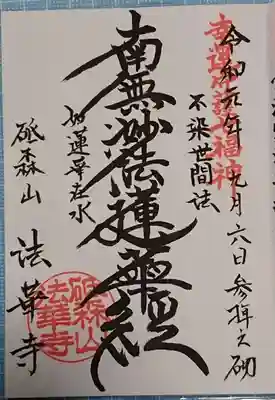 令和元年九月六日参拝之砌
不染世間法
南無妙法蓮華経
如蓮華在水
砥森山 法華寺
砥森山
法華寺